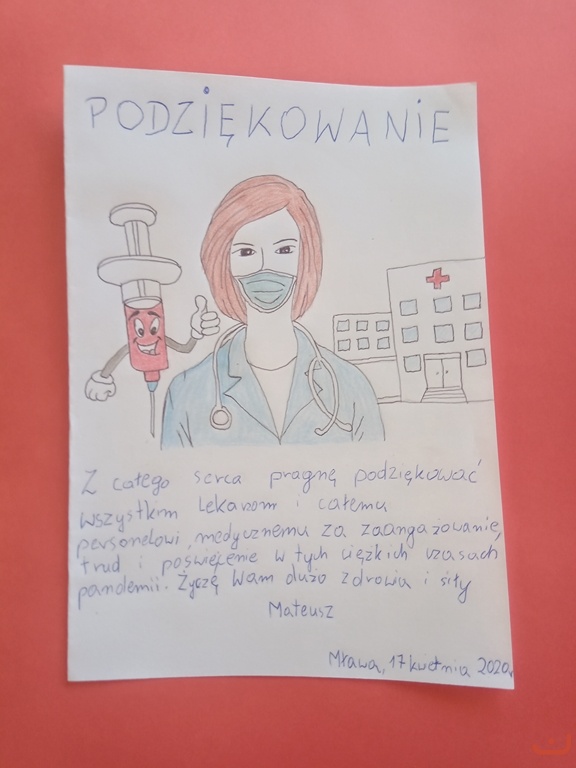 PODZIĘKOWANIE
Z całego serca pragnę podziękować
wszystkim lekarzom i całemu
personelowi medycznemu za zaangażowanie,
trud i poświęcenie w tych ciężkich czasach
pandemii. Życzę Wam dużo zdrowia i siły
Mateusz
Mława, 17 kwietnia 2020r